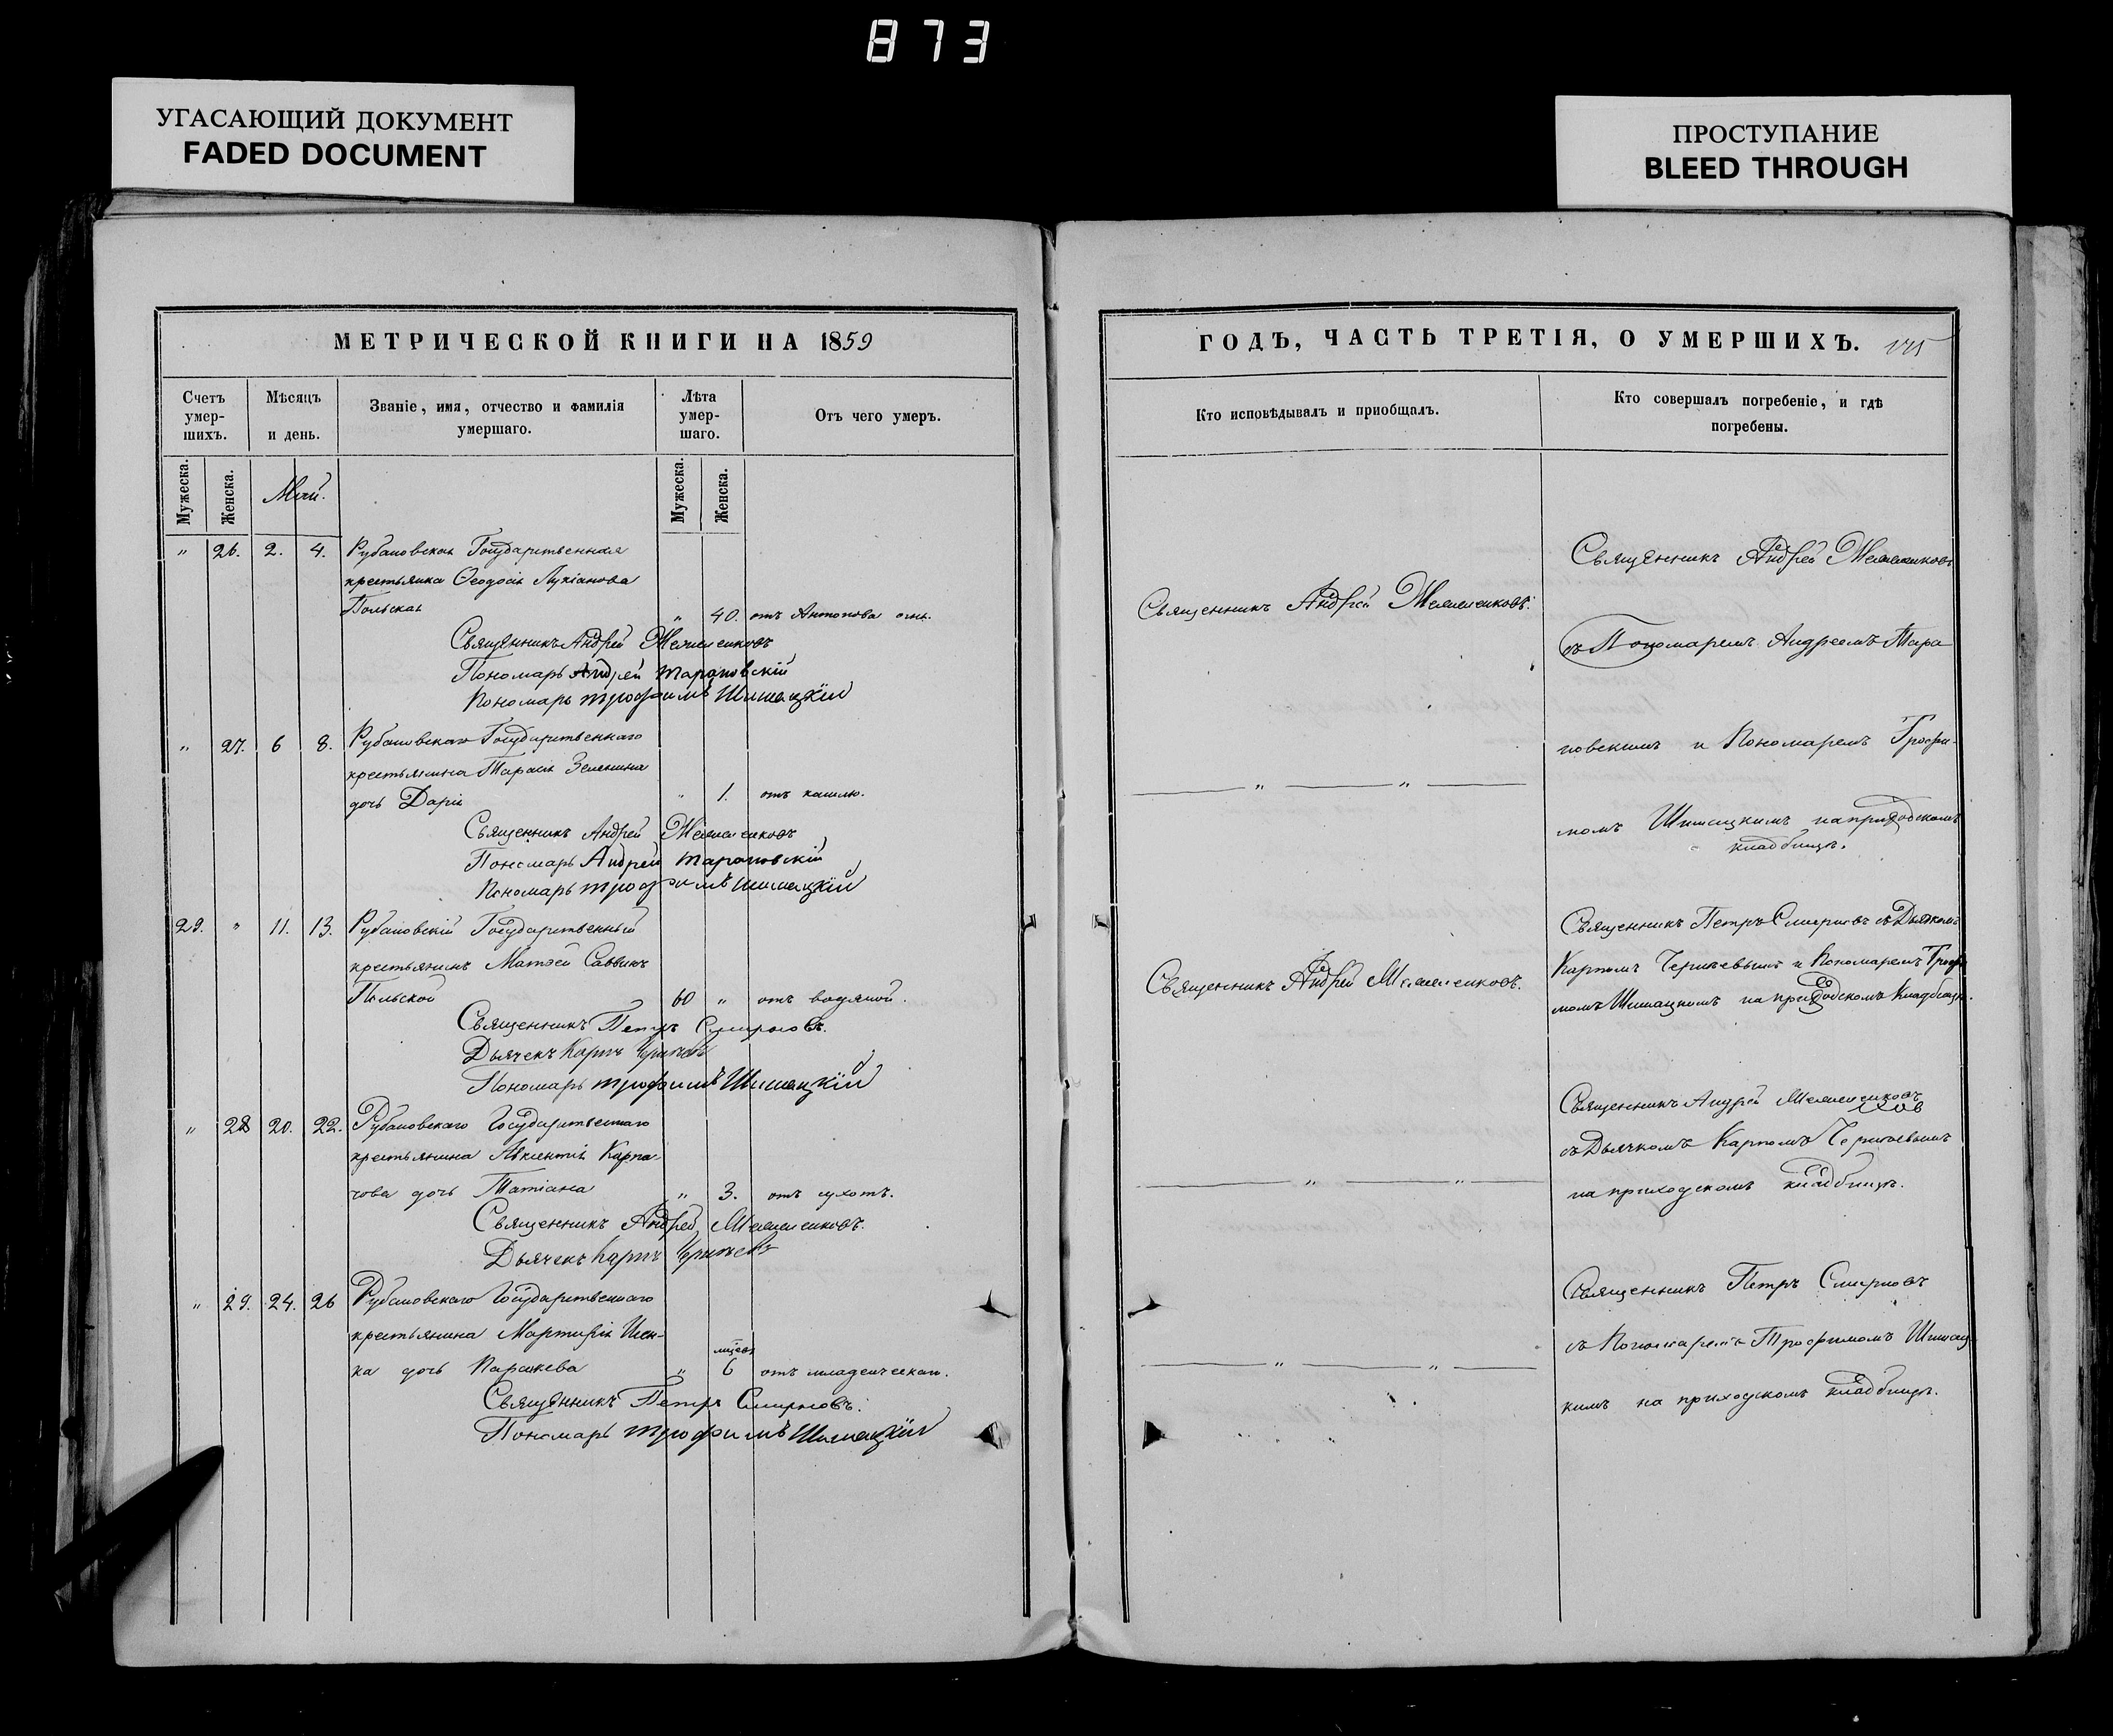 873
УГАСАЮЩИЙ ДОКУМЕНТ
FADED DOCUMENT
ПРОСТУПАНИЕ
BLEED THROUGH
МЕТРИЧЕСКОЙ КНИГИ НА 1859
Счетъ умер-шихъ.
Мѣсяцъ и день.
Званіе, имя, отчество и фамилія умершаго.
Лѣта умер-шаго.
Отъ чего умеръ.
Мужеска.
Женска.
Май.
Мужеска.
Женска.
" 26. 2. 4. Рубановская Государственная
крестьянка Ѳеодосія Лукіанова
Польская " 40. отъ Антонова огня.
Священникъ Андрей
Пономарь Андрей Тарановскій
Пономарь Трофимъ Шишацкій
" 27. 6 8. Рубановскаго Государственнаго
крестьянина Тарасія Зеленина
дочь Дарія " 1. отъ кашлю.
Священникъ Андрей
Пономарь Андрей Тарановскій
Пономарь Трофимъ Шишацкій
29. " 11. 13. Рубановскій Государственный
крестьянинъ Матѳей Саввинъ
Польской 60 " отъ водяной.
Священникъ Петръ Смирновъ.
Дьячекъ Карпъ
Пономарь Трофимъ Шишацкій
" 28 20. 22. Рубановскаго Государственнаго
крестьянина Авксентія Карпа-
чова дочь Татіана " 3. отъ сухотъ.
Священникъ Андрей
Дьячекъ Карпъ
" 29. 24. 26 Рубановскаго Государственнаго
крестьянина Мартирія
ка дочь Параскева " 6 отъ младенческаго.
Священникъ Петръ Смирновъ.
Пономарь Трофимъ Шишацкій
ГОДЪ, ЧАСТЬ ТРЕТІЯ, О УМЕРШИХЪ.
Кто исповѣдывалъ и приобщалъ.
Кто совершалъ погребеніе, и гдѣ погребены.
Священникъ Андрей
Священникъ Андрей
съ Пономаремъ Андреемъ Тара
новскимъ и Пономаремъ Трофи-
" "
момъ Шишацкимъ на приходскомъ
кладбищѣ.
Священникъ Петръ Смирновъ съ Дьячкомъ
Священникъ Андрей
Карпомъ и Пономаремъ Трофи
момъ Шишацкимъ на приходскомъ кладбищѣ.
Священникъ Андрей
съ Дьячкомъ Карпомъ
" "
на приходскомъ кладбищѣ.
Священникъ Петръ Смирновъ
съ Пономаремъ Трофимомъ Шишац
" "
кимъ на приходскомъ кладбищѣ.